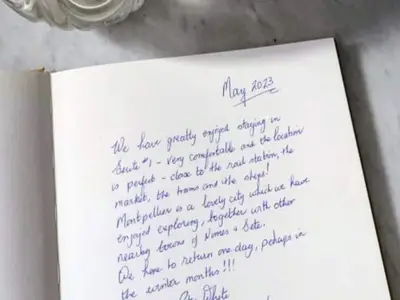 May 2023
We have greatly enjoyed staying in
Suite #1 - Very comfortable and the location
is perfect - close to the rail station, the
market, the trams and the shops!
Montpellier is a lovely city which we have
enjoyed exploring, together with other
nearby towns of Nimes & Sete.
We hope to return one day, perhaps in
the winter months!!!
White